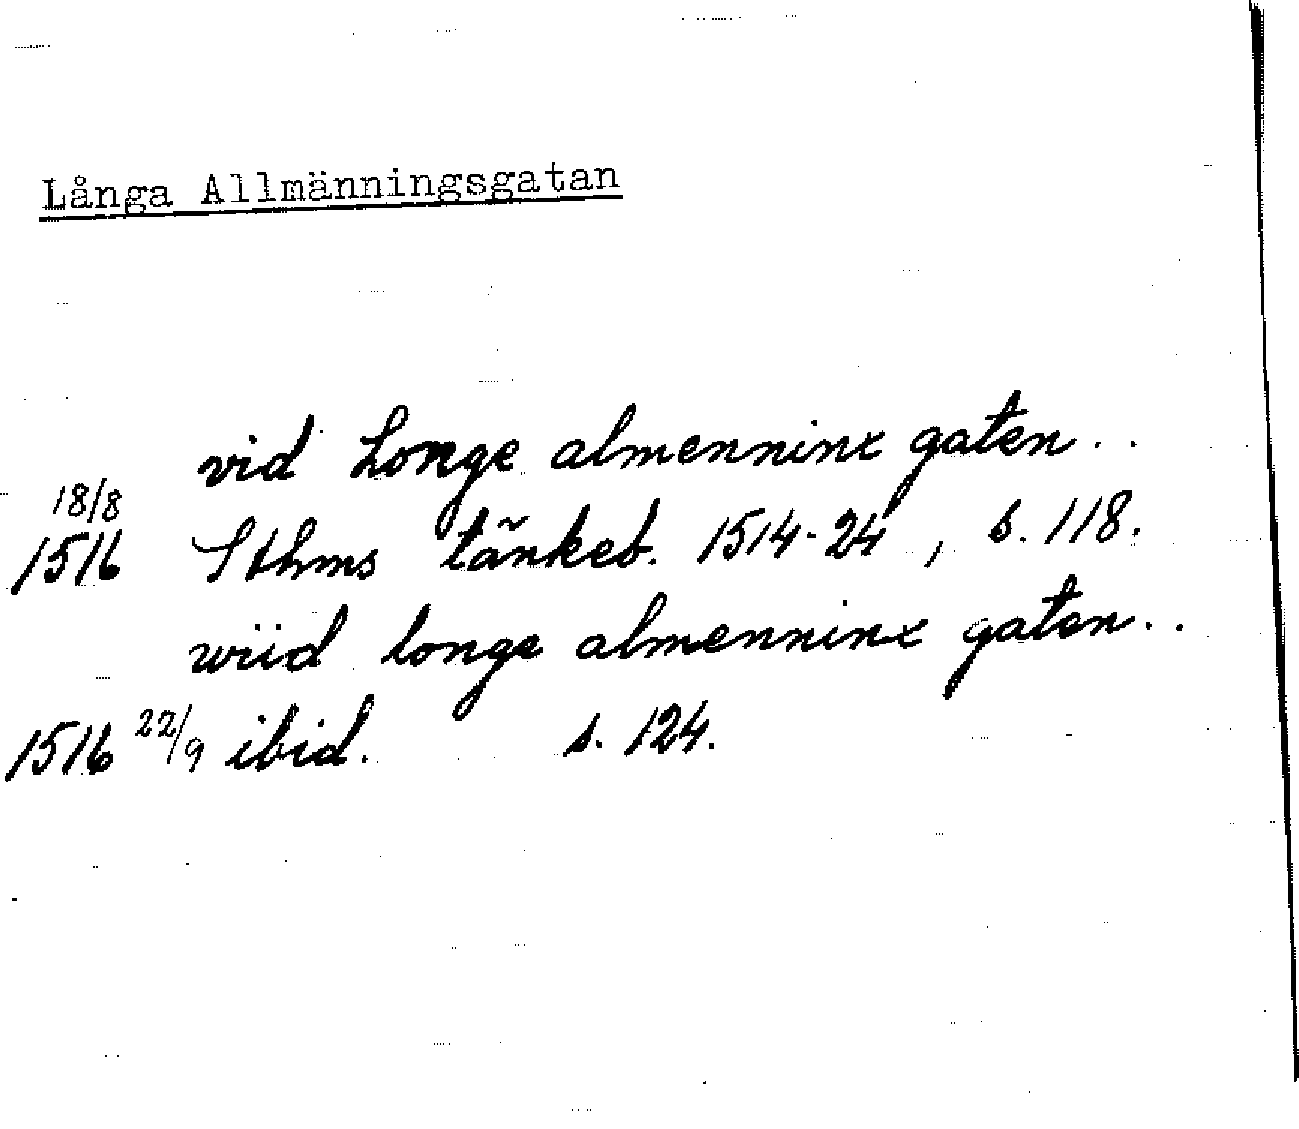 Långa Allmänningsgatan
vid Longe almenninx gaten..
18/8
1516 Sthms tänkeb. 1514-24, s. 118.
wiid longe almenninx gaten..
1516 22/9 ibid. s. 124.